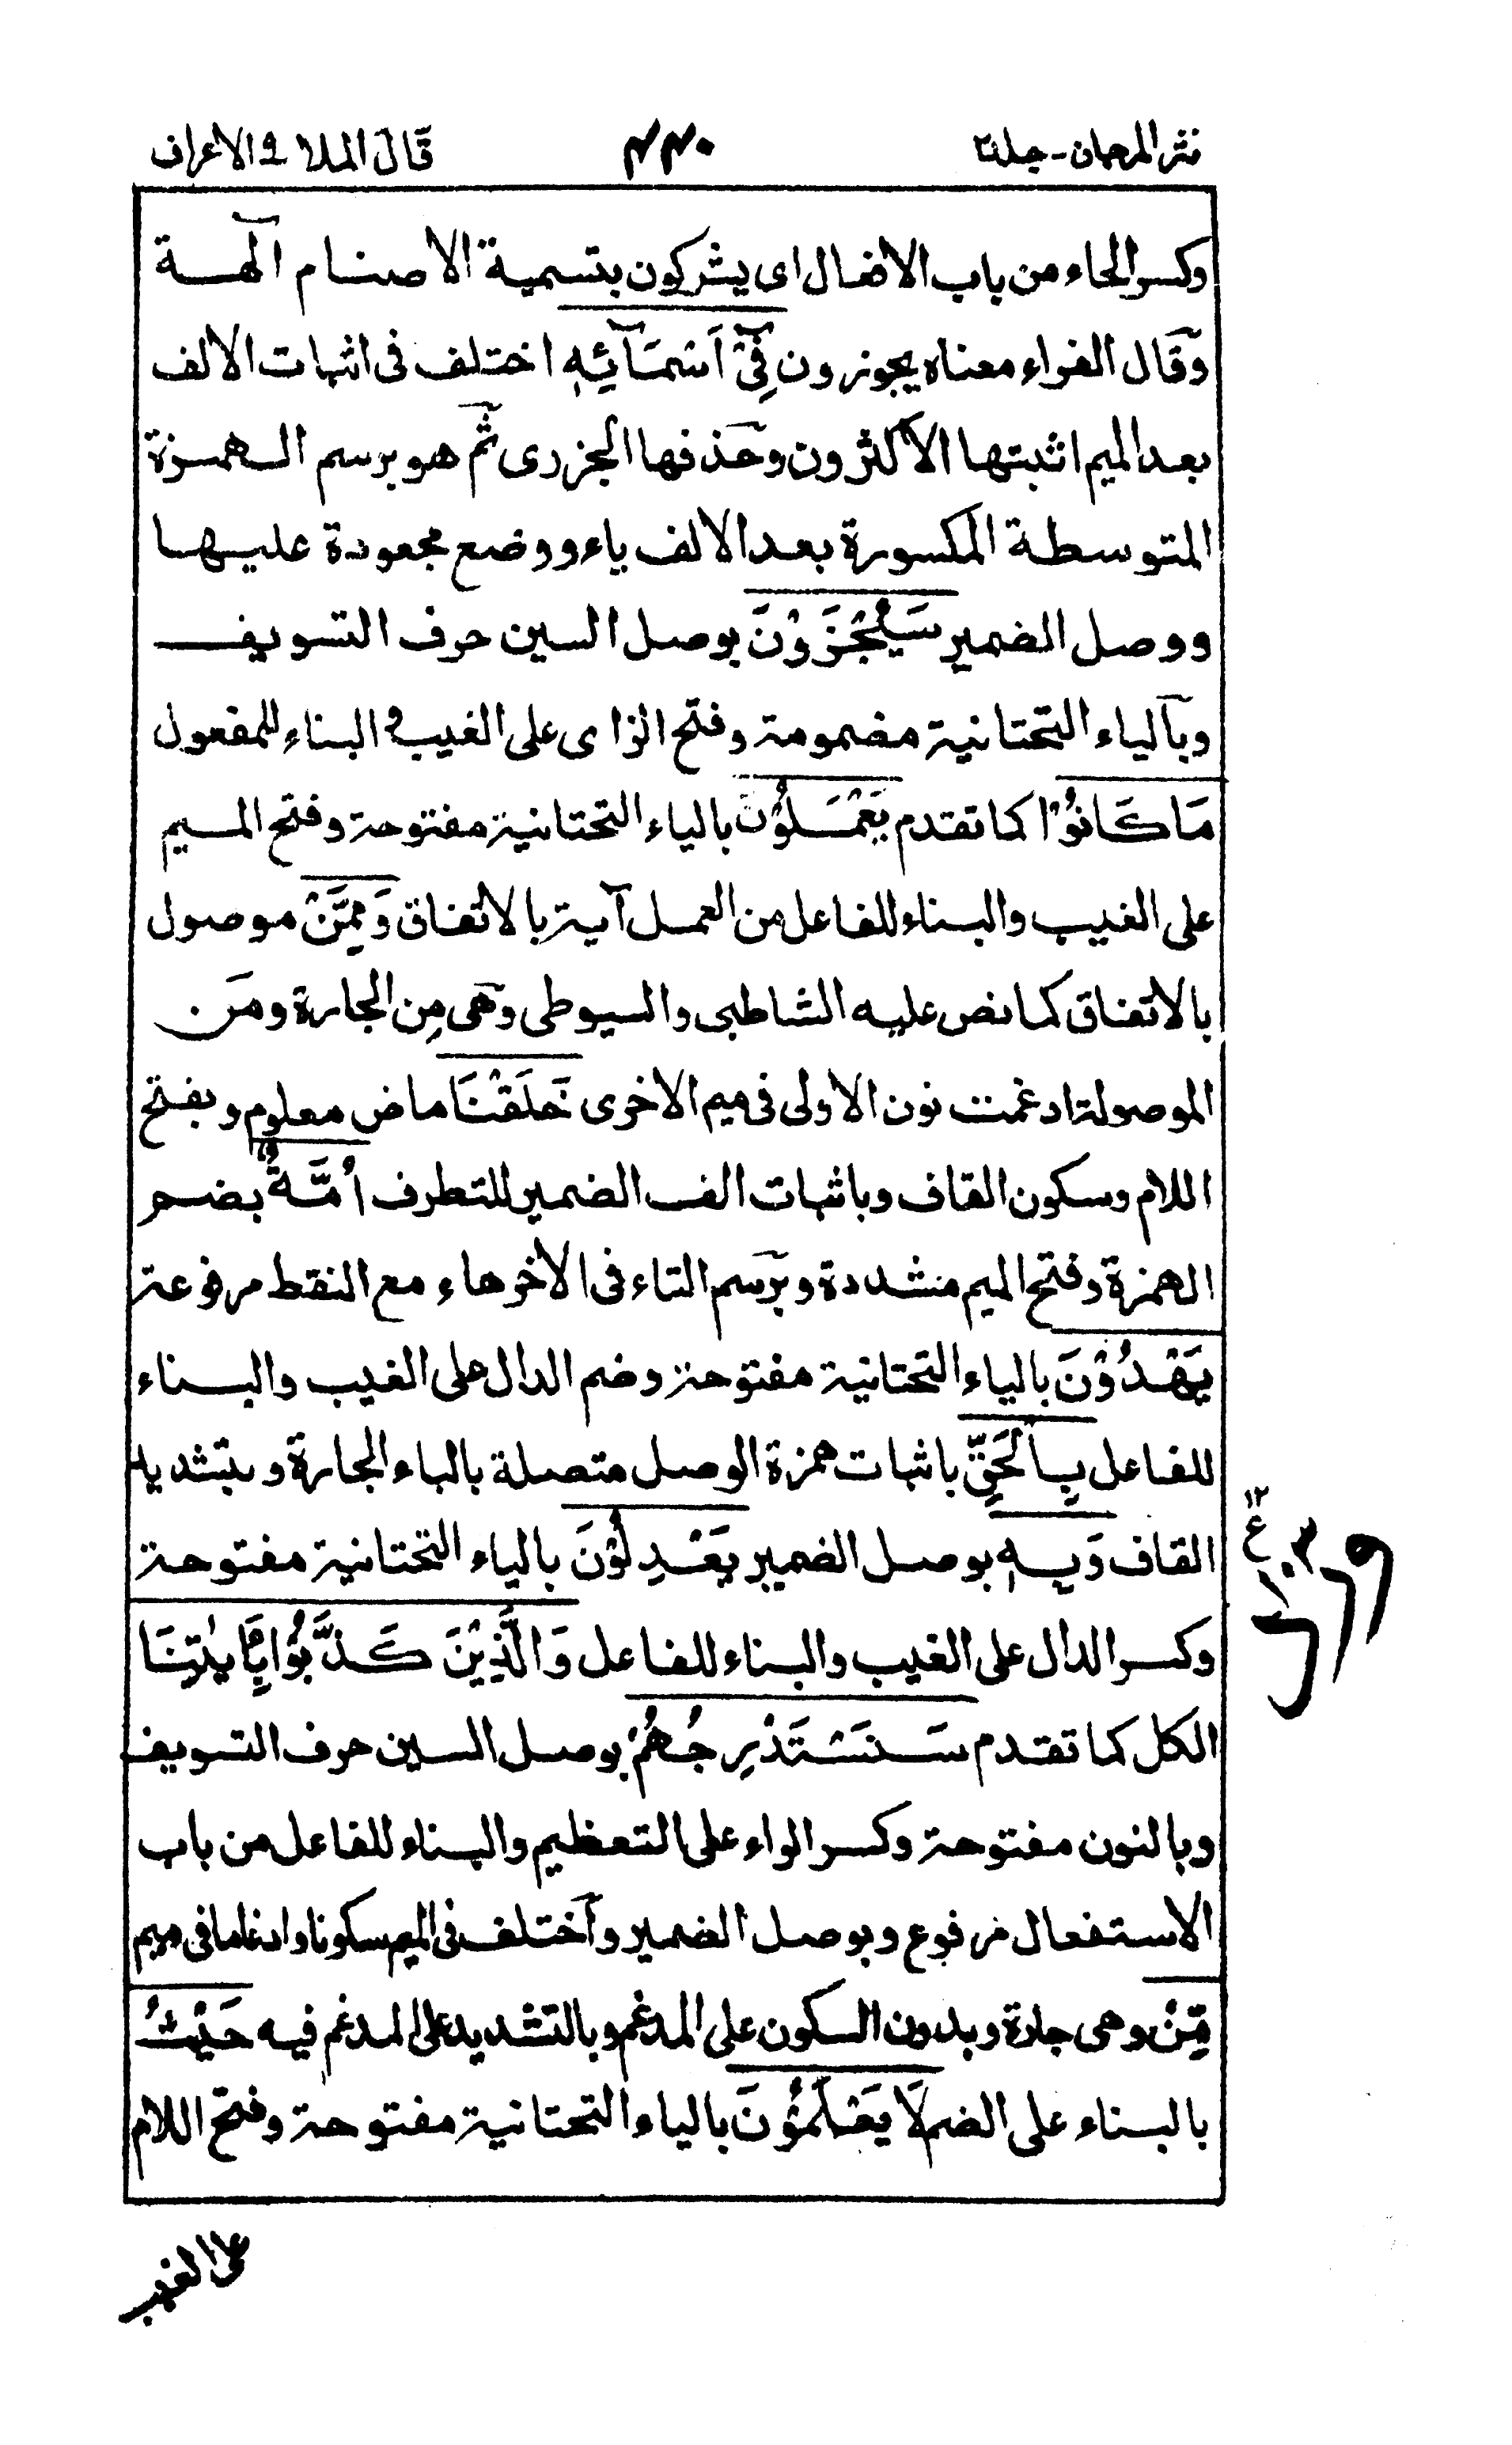 نثر المرجان - جلد٢
٤٤٠
قال الملا ٩ الاعراف
وكسر الحاء من باب الافعال اى يشركون بتسمية الاصنام آلهة
وقال الفراء معناه يجوزون فِيْٓ اَسْمَآئِهٖ اختلف فى اثبات الالف
بعد الميم اثبتها الاكثرون وحذفها الجزرى ثم هو برسم الهمزة
المتوسطة المكسورة بعد الالف ياء ووضع مجعودة عليها
ووصل الضمير سَيُجْزَوْنَ بوصل السين حرف التسويف
وبالياء التحتانية مضمومة وفتح الزاى على الغيب و البناء للمفعول
مَا كَانُوْا كما تقدم يَعْمَلُوْنَ بالياء التحتانية مفتوحة وفتح الميم
على الغيب والبناء للفاعل من العمل آية بالاتفاق وَمِمَّنْ موصول
بالاتفاق كما نص عليه الشاطبى والسيوطى وهى مِن الجارة ومَن
الموصولة ادغمت نون الاولى فى ميم الاخرى خَلَقْنَا ماض معلوم وبفتح
اللام وسكون القاف وباثبات الف الضمير للتطرف اُمَّةٌ بضم
الهمزة وفتح الميم مشددة وبرسم التاء فى الآخر هاء مع النقط مرفوعة
يَهْدُوْنَ بالياء التحتانية مفتوحة وضم الدال على الغيب والبناء
للفاعل بِالْحَقِّ باثبات همزة الوصل متصلة بالباء الجارة وبتشديد
القاف وَبِهٖ بوصل الضمير يَعْدِلُوْنَ بالياء التحتانية مفتوحة
١٢
ع
وكسر الدال على الغيب والبناء للفاعل وَالَّذِيْنَ كَذَّبُوْا بِاٰيٰتِنَا
الكل كما تقدم سَنَسْتَدْرِجُهُمْ بوصل السين حرف التسويف
وبالنون مفتوحة وكسر الراء على التعظيم والبناء للفاعل من باب
الاستفعال مرفوع وبوصل الضمير واختلف فى الميم سكونا وادغاما فى ميم
مِّنْ وهى جارة وبدون السكون على المدغم وبالتشديد على المدغم فيه حَيْثُ
بالبناء على الضم لَا يَعْلَمُوْنَ بالياء التحتانية مفتوحة وفتح اللام
على الغيب